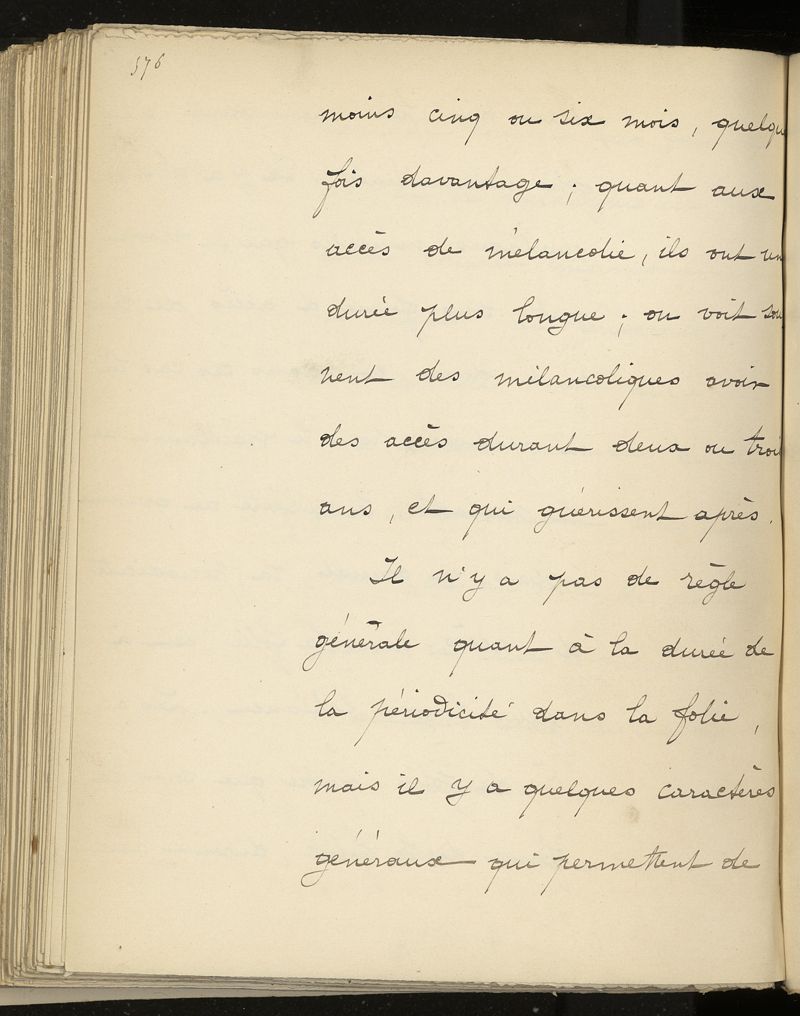 576
moins cinq ou six mois, quelque
fois davantage ; quant aux
accès de mélancolie, ils ont un
durée plus longue ; on voit sou
vent des mélancoliques avoir
des accès durant deux ou trois
ans, et qui guérissent après.
Il n'y a pas de règle
générale quant à la durée de
la périodicité dans la folie,
mais il y a quelques caractères
généraux qui permettent de